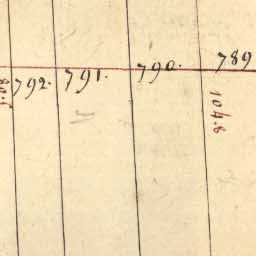 792. 791. 790. 789
104.8